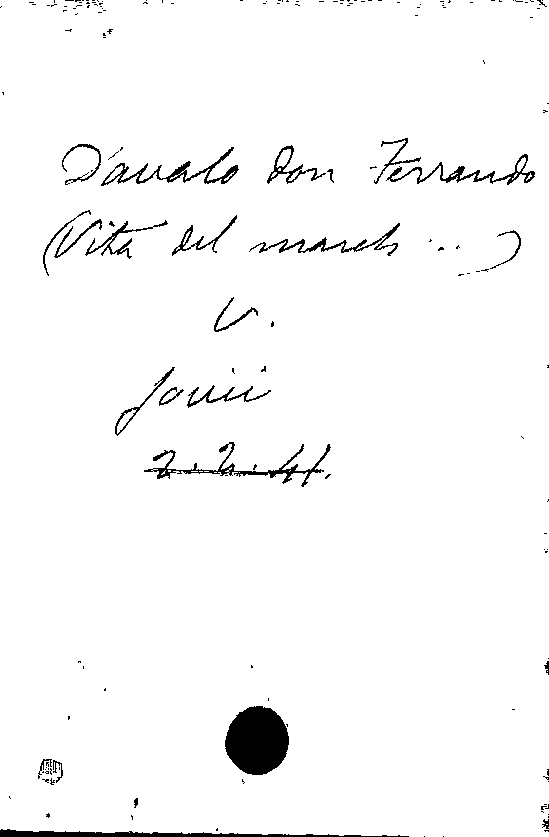 D'avalo don Ferrando
(Vita del march ...)
V.
Jovii
2.2.41.